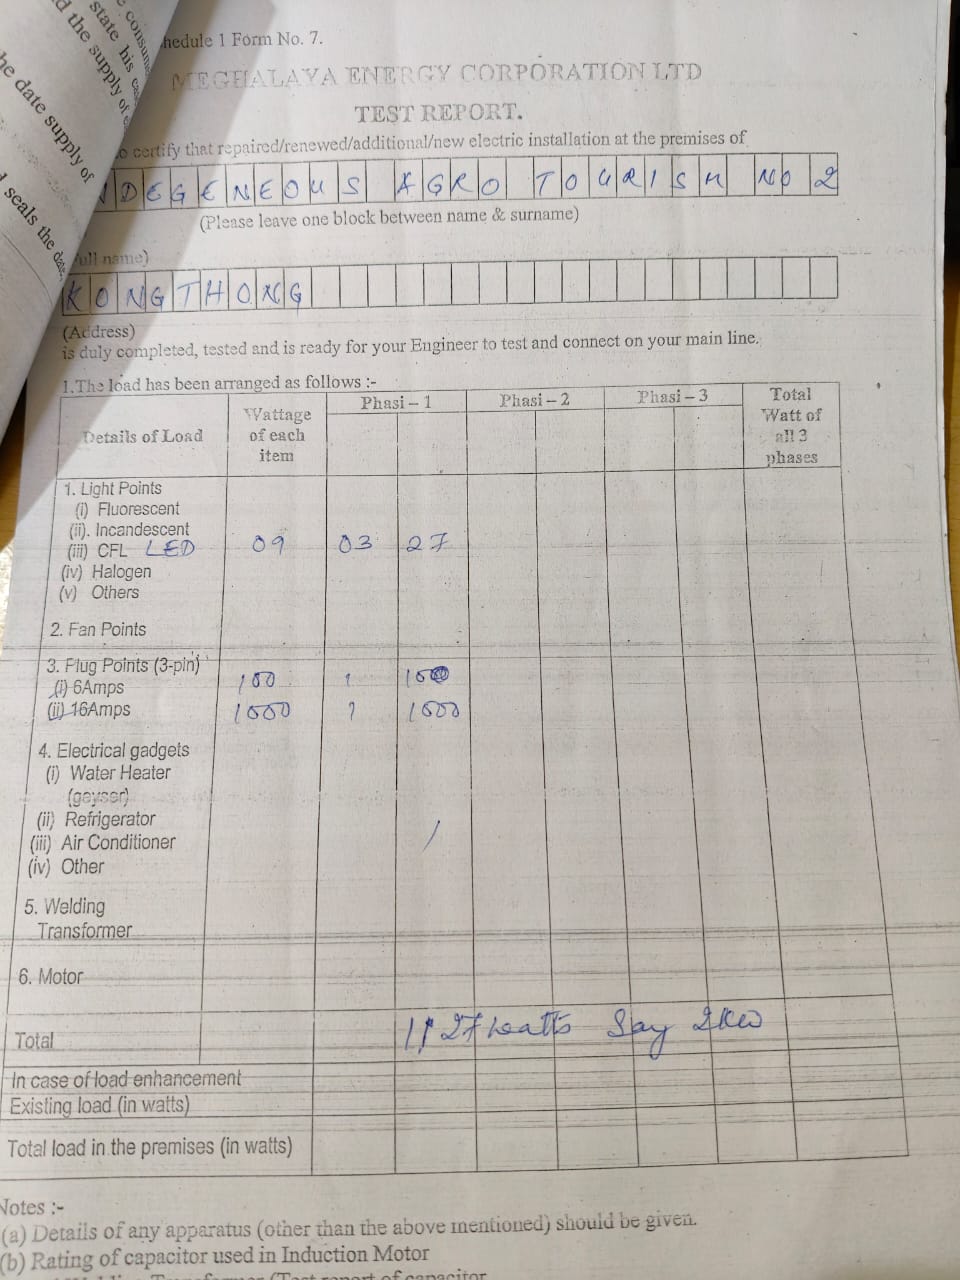 consum
state his
d the supply of
he date supply of
seals the date
hedule 1 Form No. 7.
MEGHALAYA ENERGY CORPORATION LTD
TEST REPORT.
o certify that repaired/renewed/additional/new electric installation at the premises of
NDEGENEOUS AGRO TOURISM NO 2
(Please leave one block between name & surname)
full name)
KONGTHONG
(Address)
is duly completed, tested and is ready for your Engineer to test and connect on your main line.
1.The load has been arranged as follows :-
Details of Load Wattage of each item Phasi – 1 Phasi – 2 Phasi – 3 Total Watt of all 3 phases
1. Light Points
(i) Fluorescent
(ii). Incandescent
(iii) CFL LED 09 03 27
(iv) Halogen
(v) Others
2. Fan Points
3. Plug Points (3-pin)
(i) 6Amps 100 1 100
(ii) 16Amps 1000 1 1000
4. Electrical gadgets
(i) Water Heater
(geyser)
(ii) Refrigerator
(iii) Air Conditioner
(iv) Other
5. Welding
Transformer
6. Motor
Total 1127 watts Say 2kw
In case of load enhancement
Existing load (in watts)
Total load in the premises (in watts)
Notes :-
(a) Details of any apparatus (other than the above mentioned) should be given.
(b) Rating of capacitor used in Induction Motor
(Test report of capacitor